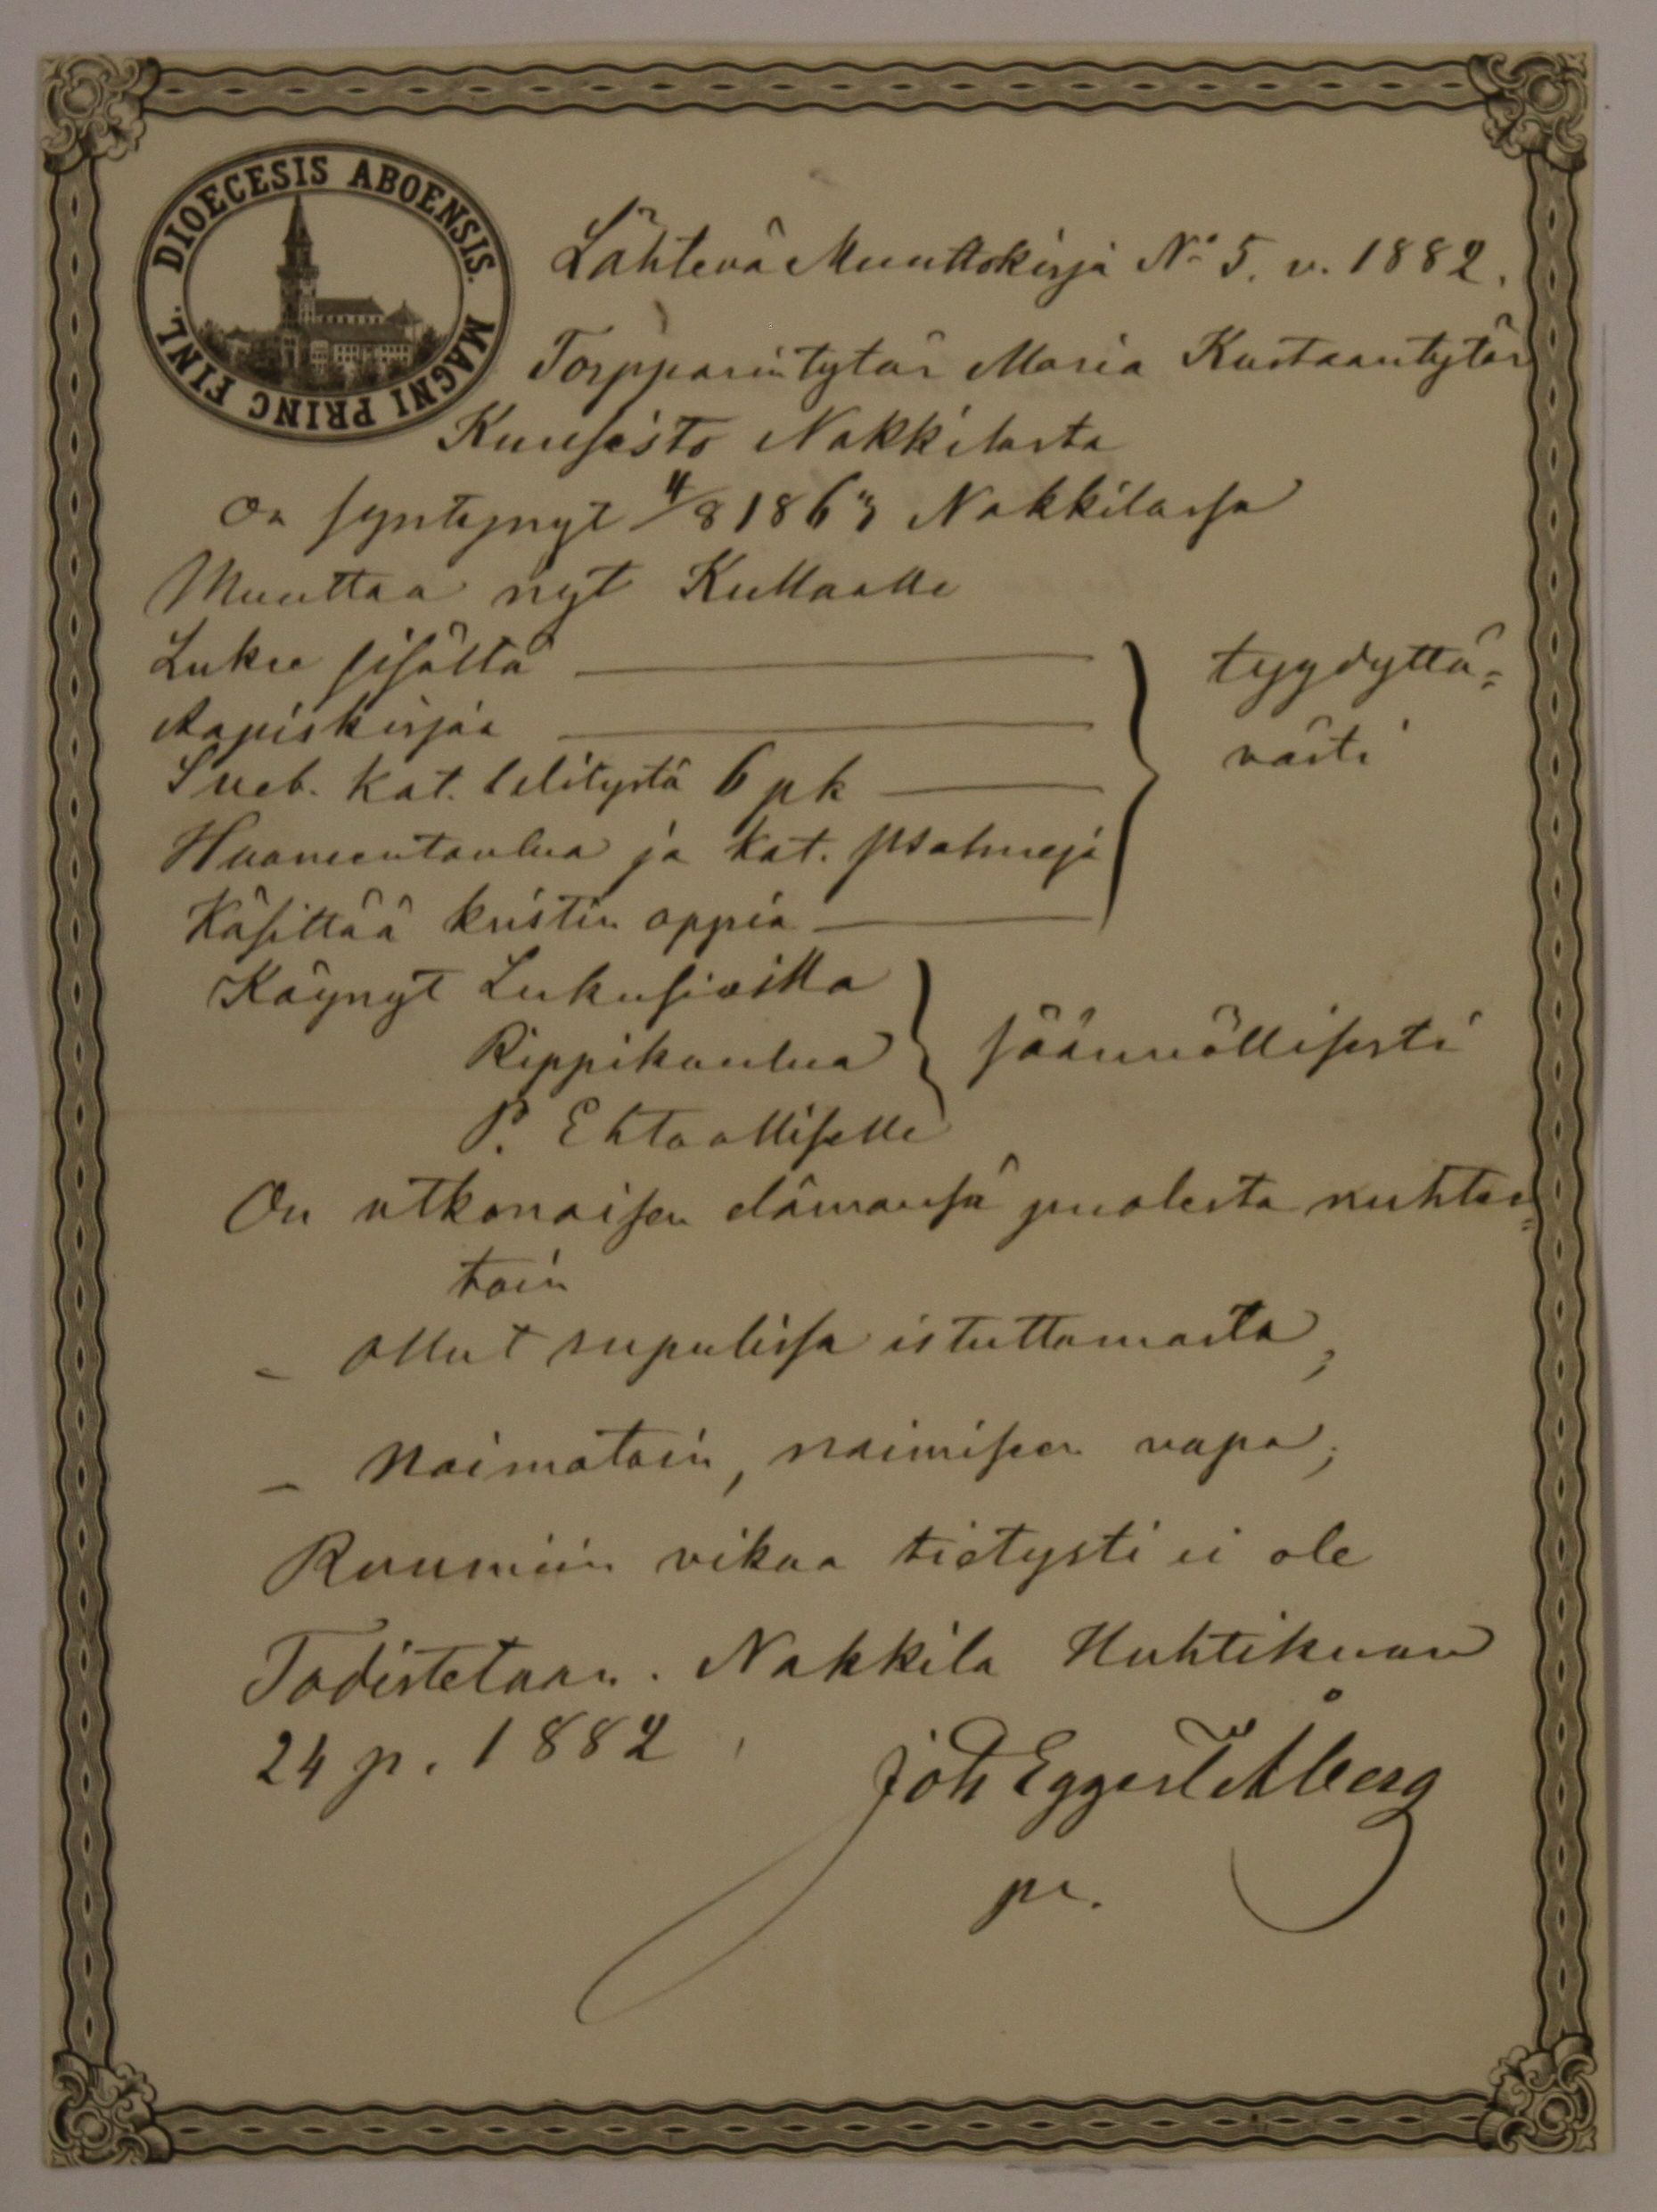 DIOECESIS ABOENSIS. MAGNI PRINC FINL.
Lähtevä Muuttokirja No 5. v. 1882.
Torpparintytär Maria Kustaantytär
Kuusisto Nakkilasta
On syntynyt 4/8 1863 Nakkilassa
Muuttaa nyt Kullaalle
Lukee sisältä
tyydyttä=
Aapiskirjaa
västi
Sveb. kat. selitystä 6 pk
Huoneentaulua ja kat. psalmeja
Käsittää kristin oppia
Käynyt Lukusioilla
Rippikoulua
säännöllisesti
P. Ehtoollisella
On ulkonaisen elämänsä puolesta nuhtee=
toin
- ollut rupulissa istuttamasta,
- Naimatoin, naimiseen vapa,
Ruumiin vikaa tietysti ei ole
Todistetaan. Nakkila Huhtikuun
24 p. 1882
Joh Eggert Åberg